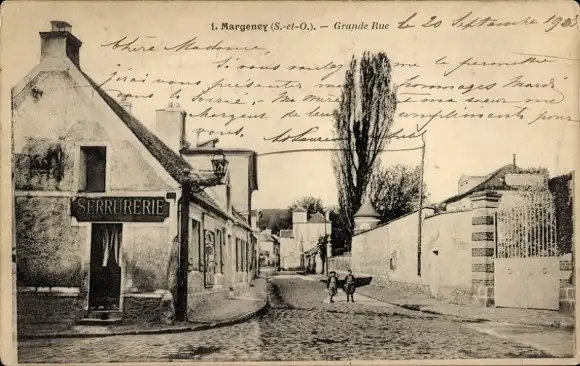 1. Margency (S.-et-O.). — Grande Rue
le 20 Septembre 1903
Chère Madame,
Si vous voulez me le permettre
j'irai vous présenter mes hommages Mardi
dans la soirée. Ma mère et ma sœur me
chargent de leurs compliments pour
vous.
SERRURERIE